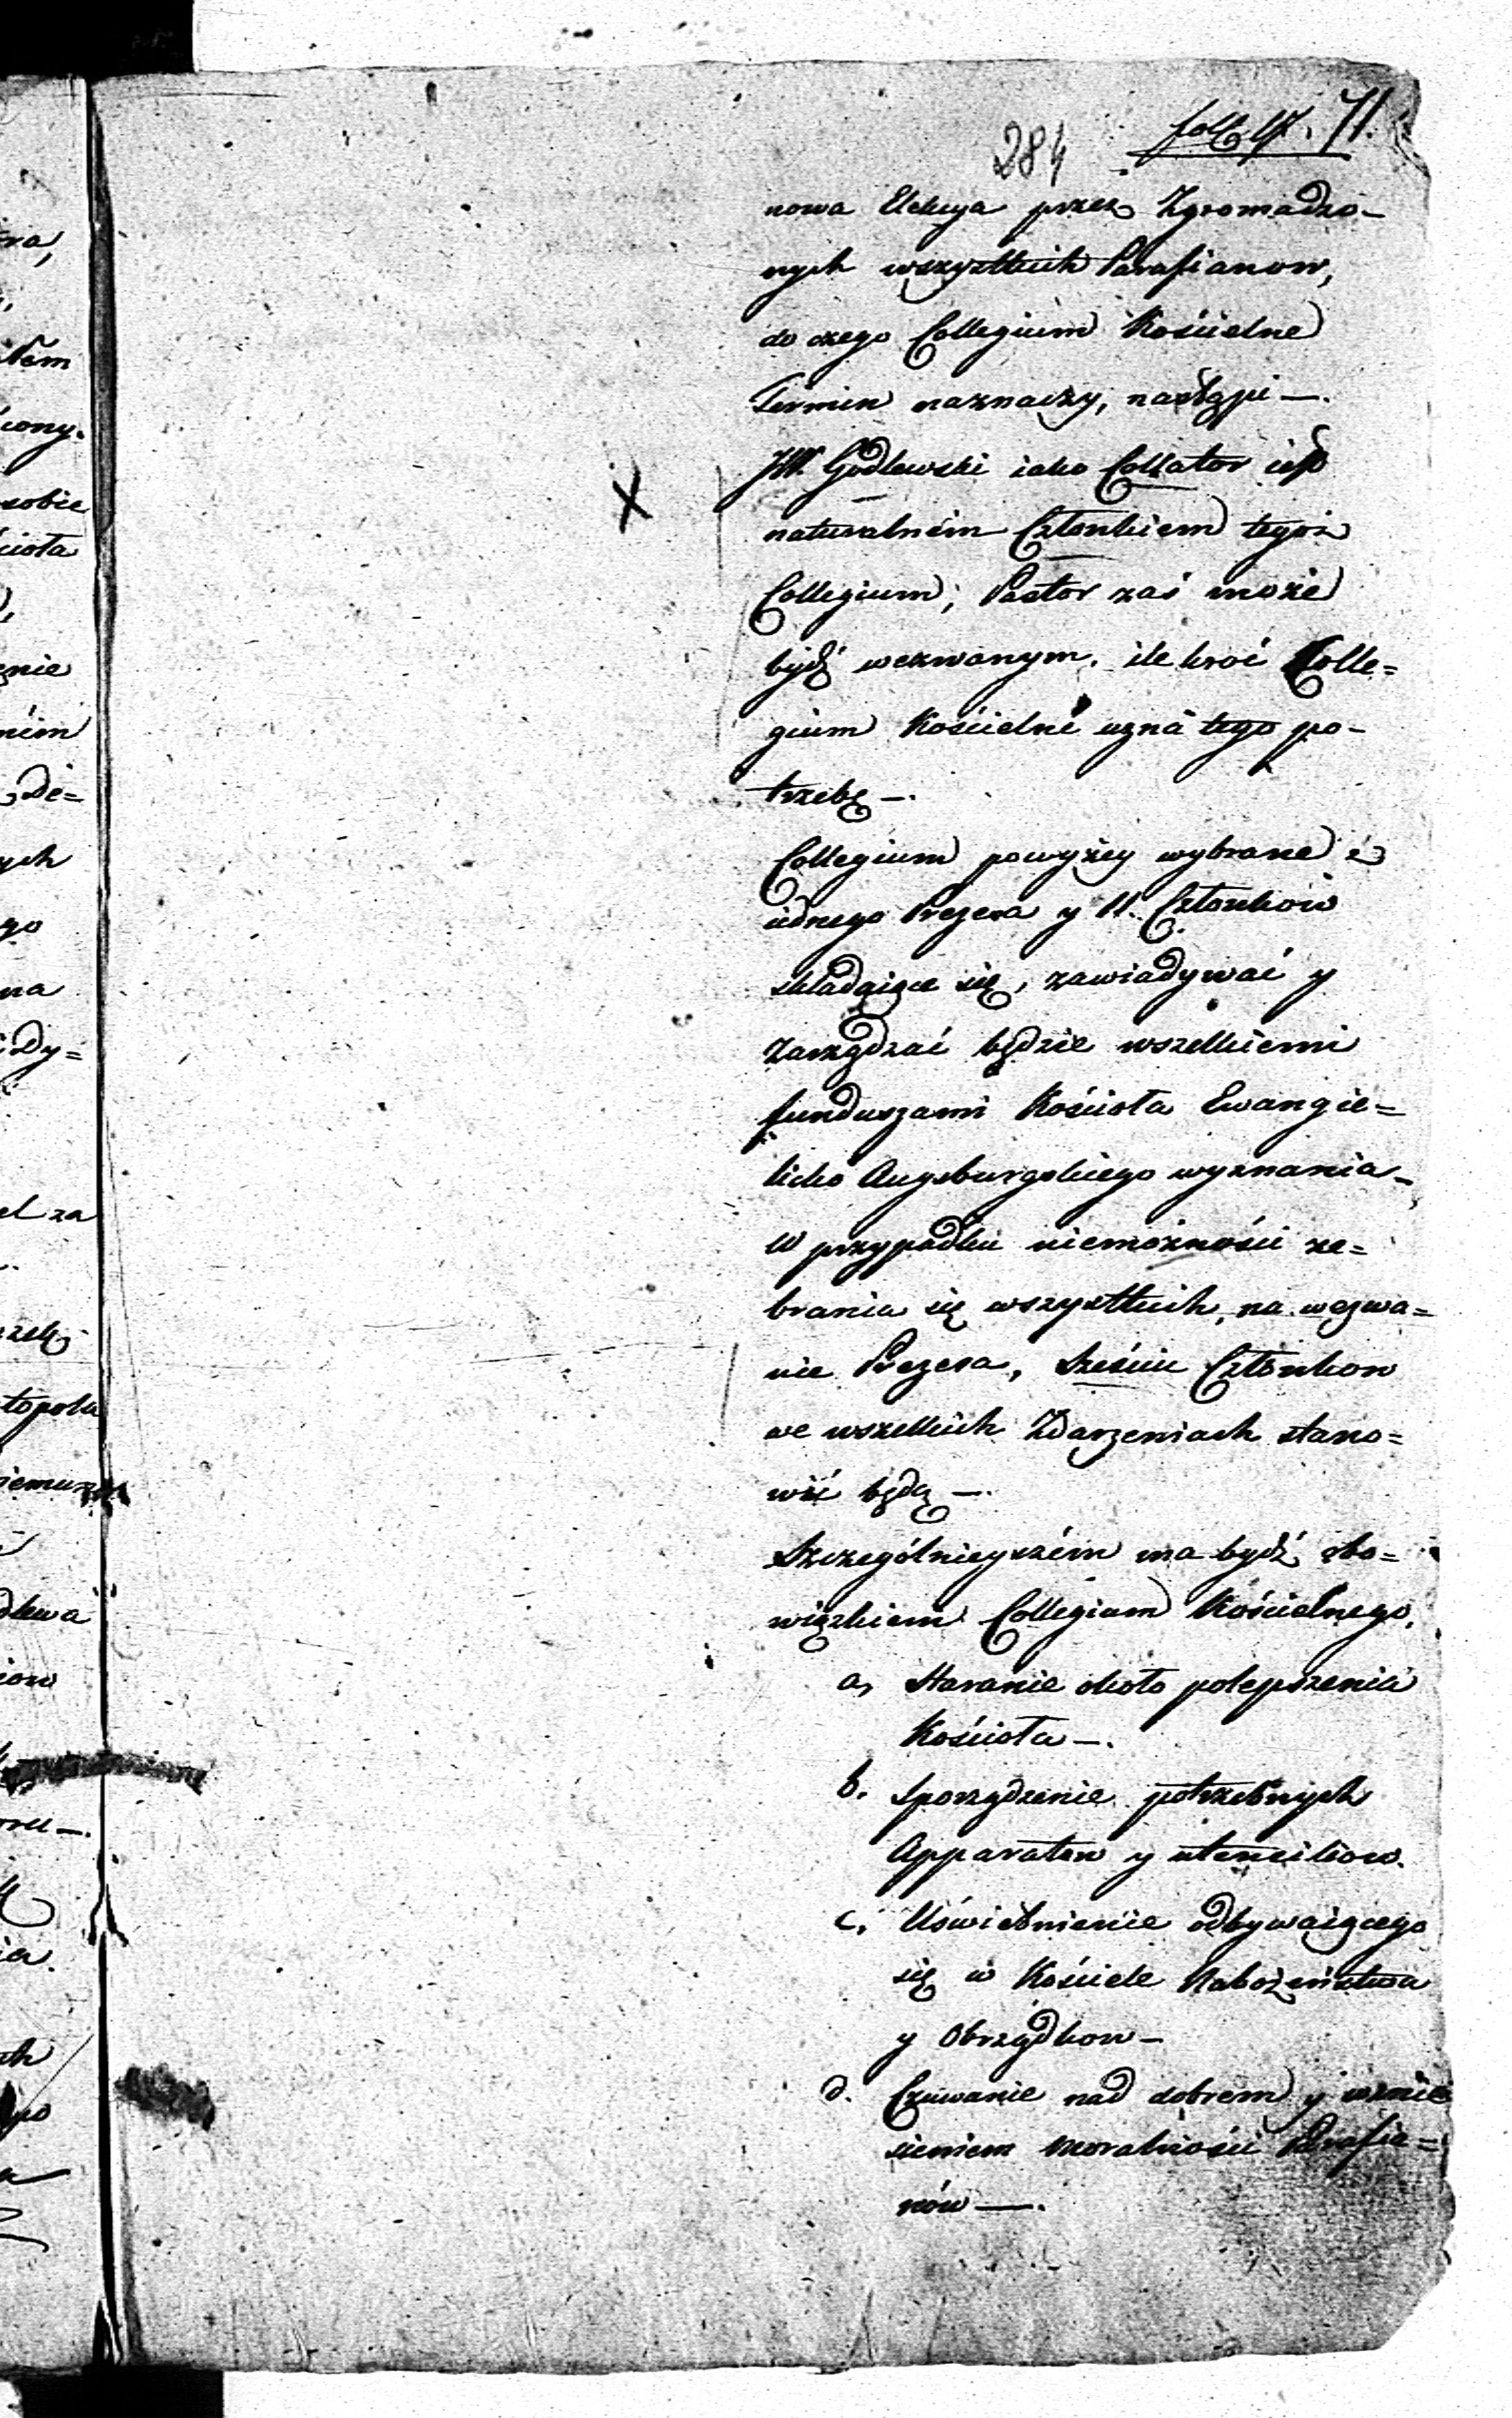 284 71.
nowa Elekcya przez Zgromadzo-
nych wszystkich Parafianow,
do czego Collegium Kościelne
Termin naznaczy, nastąpi —.
JW. Godlewski iako Collator iest
naturalnem Członkiem tegoż
Collegium; Pastor zaś może
bydź wezwanym, ile kroć Colle=
gium Kościelne uzna tego po-
trzebę —.
Collegium powyżey wybrane z
iednego Prezesa y 11. Członków
składaiące się, zawiadywać y
Zarządzać będzie wszelkiemi
funduszami Kościoła Ewangie=
licko Augsburgskiego wyznania —
W przypadku niemożności ze=
brania się wszystkich, na wezwa=
nie Prezesa, sześciu Członkow
we wszelkich Zdarzeniach stano=
wić będą —.
Szczególnieyszém ma bydź obo=
wiązkiem Collegium Kościelnego,
a, Staranie około polepszenia
Kościoła —.
b. Sporządzenie potrzebnych
Apparatow y utensiliow.
c, Uświetnienie odbywaiącego
się w Kościele Nabożeństwa
y Obrządkow —
d. Czuwanie nad dobrem y wznie
sieniem moralności Parafia=
nów —.
ra,
cony.
sobie
cioła
nie
nim
de=
ych
go
na
dy=
el za
topolu
dlewa
iow